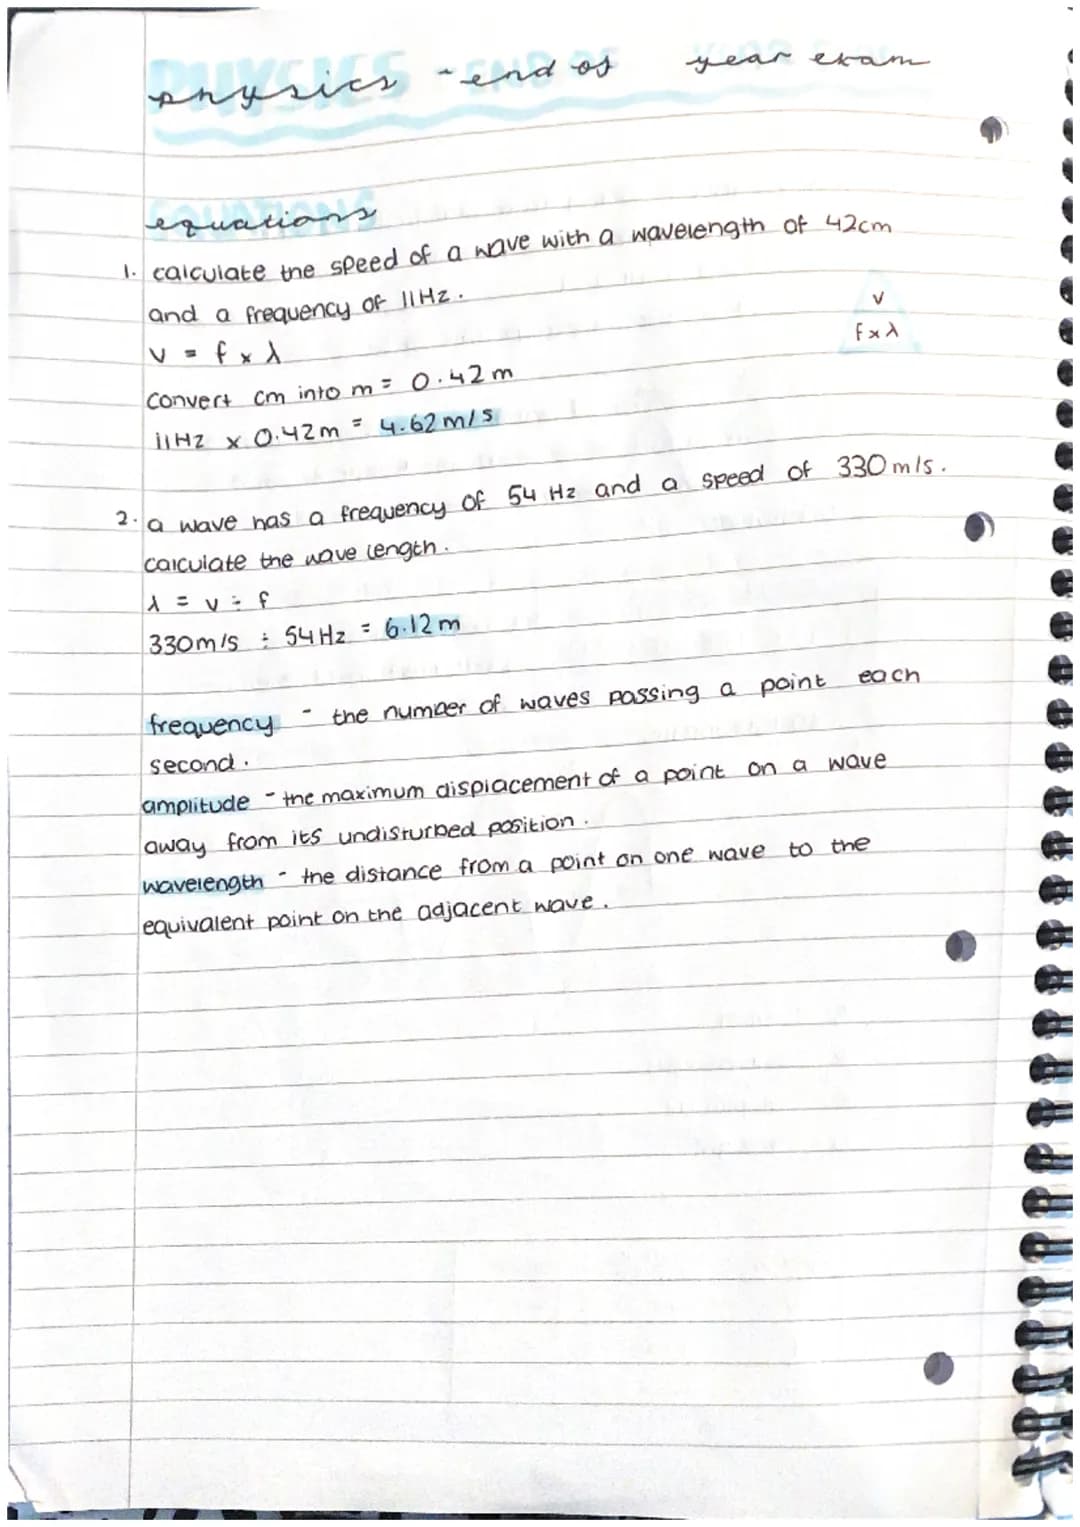 physics - end of year exam
equations
1. calculate the speed of a wave with a wavelength of 42cm
and a frequency of 11Hz.
v = f x λ
v
f x λ
convert cm into m = 0.42m
11Hz x 0.42m = 4.62m/s
2. a wave has a frequency of 54 Hz and a speed of 330m/s.
calculate the wave length.
λ = v ÷ f
330m/s ÷ 54Hz = 6.12m
frequency - the number of waves passing a point each
second.
amplitude - the maximum displacement of a point on a wave
away from its undisturbed position.
wavelength - the distance from a point on one wave to the
equivalent point on the adjacent wave.